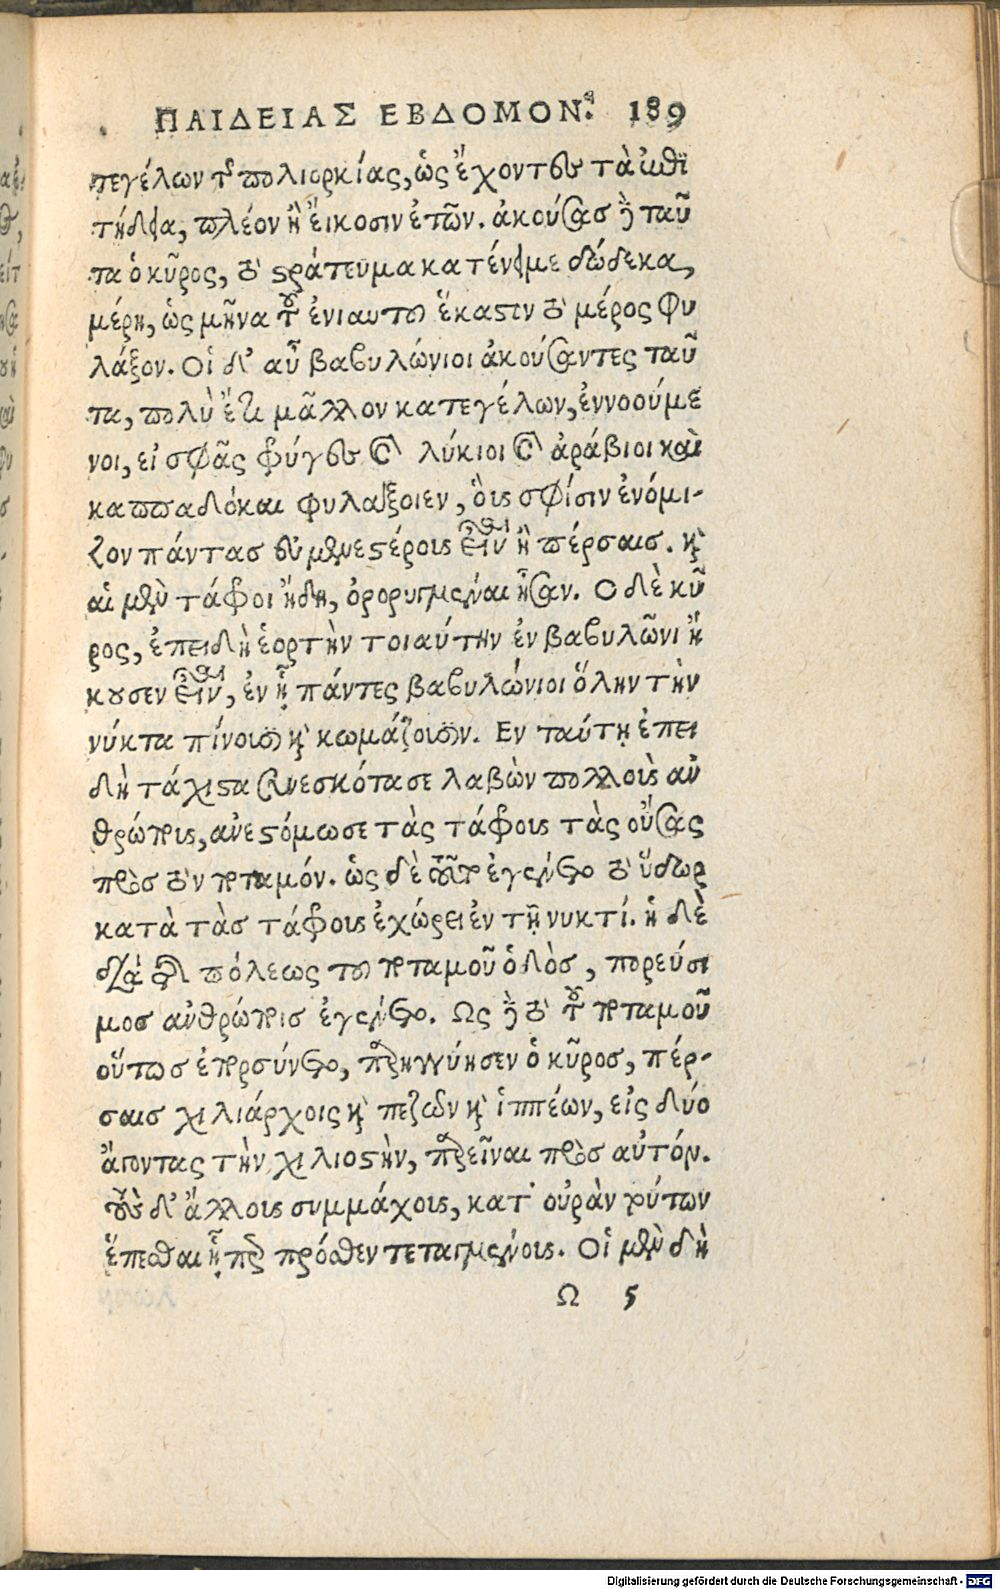 ΠΑΙΔΕΙΑΣ ΕΒΔΟΜΟΝ. 189
τεγέλων τῆς πολιορκίας, ὡς ἔχοντες τὰ ἐπι
τήδεια, πλέον ἢ εἴκοσιν ἐτῶν. ἀκούσας δὲ ταῦ
τα ὁ κῦρος, τὸ στράτευμα κατένειμε δώδεκα
μέρη, ὡς μῆνα τοῦ ἐνιαυτοῦ ἕκαστον τὸ μέρος φυ
λάξον. Οἱ δ' αὖ βαβυλώνιοι ἀκούσαντες ταῦ
τα, πολὺ ἔτι μᾶλλον κατεγέλων, ἐννοούμε
νοι, εἰ σφᾶς φύγες καὶ λύκιοι καὶ ἀράβιοι καὶ
καππαδόκαι φυλάξοιεν, οὓς σφίσιν ἐνόμι-
ζον πάντας εὐμενεστέρους εἶναι ἢ πέρσαις. καὶ
αἱ μὲν τάφοι ἤδη, ὀρορυγμέναι ἦσαν. Ο δὲ κῦ
ρος, ἐπειδὴ ἑορτὴν τοιαύτην ἐν βαβυλῶνι ἤ
κουσεν εἶναι, ἐν ᾗ πάντες βαβυλώνιοι ὅλην τὴν
νύκτα πίνουσι καὶ κωμάζουσιν. Εν ταύτῃ ἐπει
δὴ τάχιστα συνεσκότασε λαβὼν πολλοὺς ἀν
θρώπους, ἀνεστόμωσε τὰς τάφους τὰς οὔσας
πρὸς τὸν ποταμόν. ὡς δὲ τοῦτο ἐγένετο τὸ ὕδωρ
κατὰ τὰς τάφους ἐχώρει ἐν τῇ νυκτί. ἡ δὲ
διὰ τῆς πόλεως τοῦ ποταμοῦ ὁδὸς, πορεύσι
μος ἀνθρώποις ἐγένετο. Ως δὲ τὸ τοῦ ποταμοῦ
οὕτως ἐπορσύνετο, παρηγγύησεν ὁ κῦρος, πέρ-
σαις χιλιάρχοις καὶ πεζῶν καὶ ἱππέων, εἰς δύο
ἄγοντας τὴν χιλιοστὴν, παρεῖναι πρὸς αὐτόν.
τοὺς δ' ἄλλους συμμάχους, κατ' οὐρὰν τούτων
ἕπεσθαι ᾗπερ πρόσθεν τεταγμένους. Οἱ μὲν δὴ
Ω 5
Digitalisierung gefördert durch die Deutsche Forschungsgemeinschaft - DFG